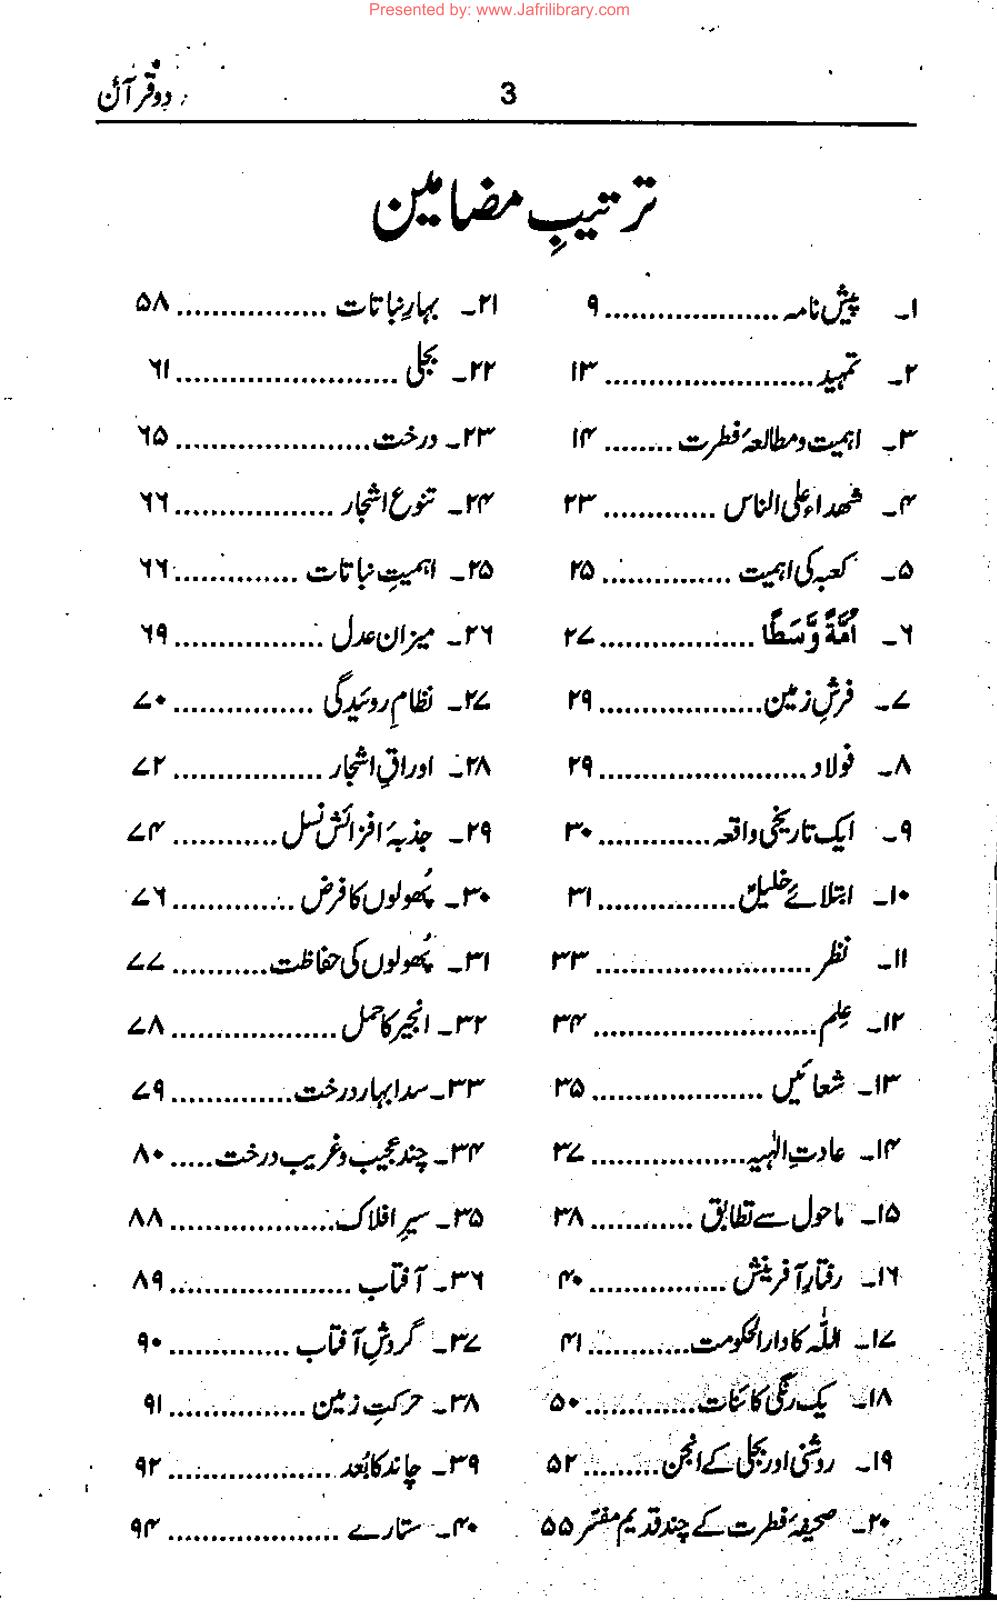 Presented by: www.Jafrilibrary.com
دو قرآن
3
ترتیبِ مضامین
۱۔ پیش نامہ .................... ۹
۲۔ تمہید ........................ ۱۳
۳۔ اہمیت و مطالعۂ فطرت ........ ۱۴
۴۔ شھداء علی الناس ............. ۲۳
۵۔ کعبہ کی اہمیت ............... ۲۵
۶۔ اُمَّةً وَّسَطًا .................. ۲۷
۷۔ فرشِ زمین ................... ۲۹
۸۔ فولاد ........................ ۲۹
۹۔ ایک تاریخی واقعہ ............. ۳۰
۱۰۔ ابتلائے خلیلؑ ................ ۳۱
۱۱۔ نظر ......................... ۳۳
۱۲۔ عِلم .......................... ۳۴
۱۳۔ شعائیں .................... ۳۵
۱۴۔ عادتِ الٰہیہ .................. ۳۷
۱۵۔ ماحول سے تطابق ............ ۳۸
۱۶۔ رفتارِ آفرینش ................ ۴۰
۱۷۔ اللہ کا دارالحکومت ............ ۴۱
۱۸۔ یک رنگی کائنات ............. ۵۰
۱۹۔ روشنی اور بجلی کے انجن ......... ۵۲
۲۰۔ صحیفۂ فطرت کے چند قدیم مفسّر ۵۵
۲۱۔ بہارِ نباتات ................. ۵۸
۲۲۔ بجلی ......................... ۶۱
۲۳۔ درخت ...................... ۶۵
۲۴۔ تنوع اشجار .................. ۶۶
۲۵۔ اہمیتِ نباتات .............. ۶۶
۲۶۔ میزان عدل ................. ۶۹
۲۷۔ نظامِ روئیدگی ................ ۷۰
۲۸۔ اوراقِ اشجار ................. ۷۲
۲۹۔ جذبۂ افزائش نسل ............ ۷۴
۳۰۔ پُھولوں کا فرض .............. ۷۶
۳۱۔ پُھولوں کی حفاظت ........... ۷۷
۳۲۔ انجیر کا حمل ................... ۷۸
۳۳۔ سدا بہار درخت .............. ۷۹
۳۴۔ چند عجیب و غریب درخت ..... ۸۰
۳۵۔ سیرِ افلاک ................... ۸۸
۳۶۔ آفتاب ..................... ۸۹
۳۷۔ گردشِ آفتاب .............. ۹۰
۳۸۔ حرکتِ زمین ................ ۹۱
۳۹۔ چاند کا بُعد ................... ۹۲
۴۰۔ ستارے .................... ۹۴